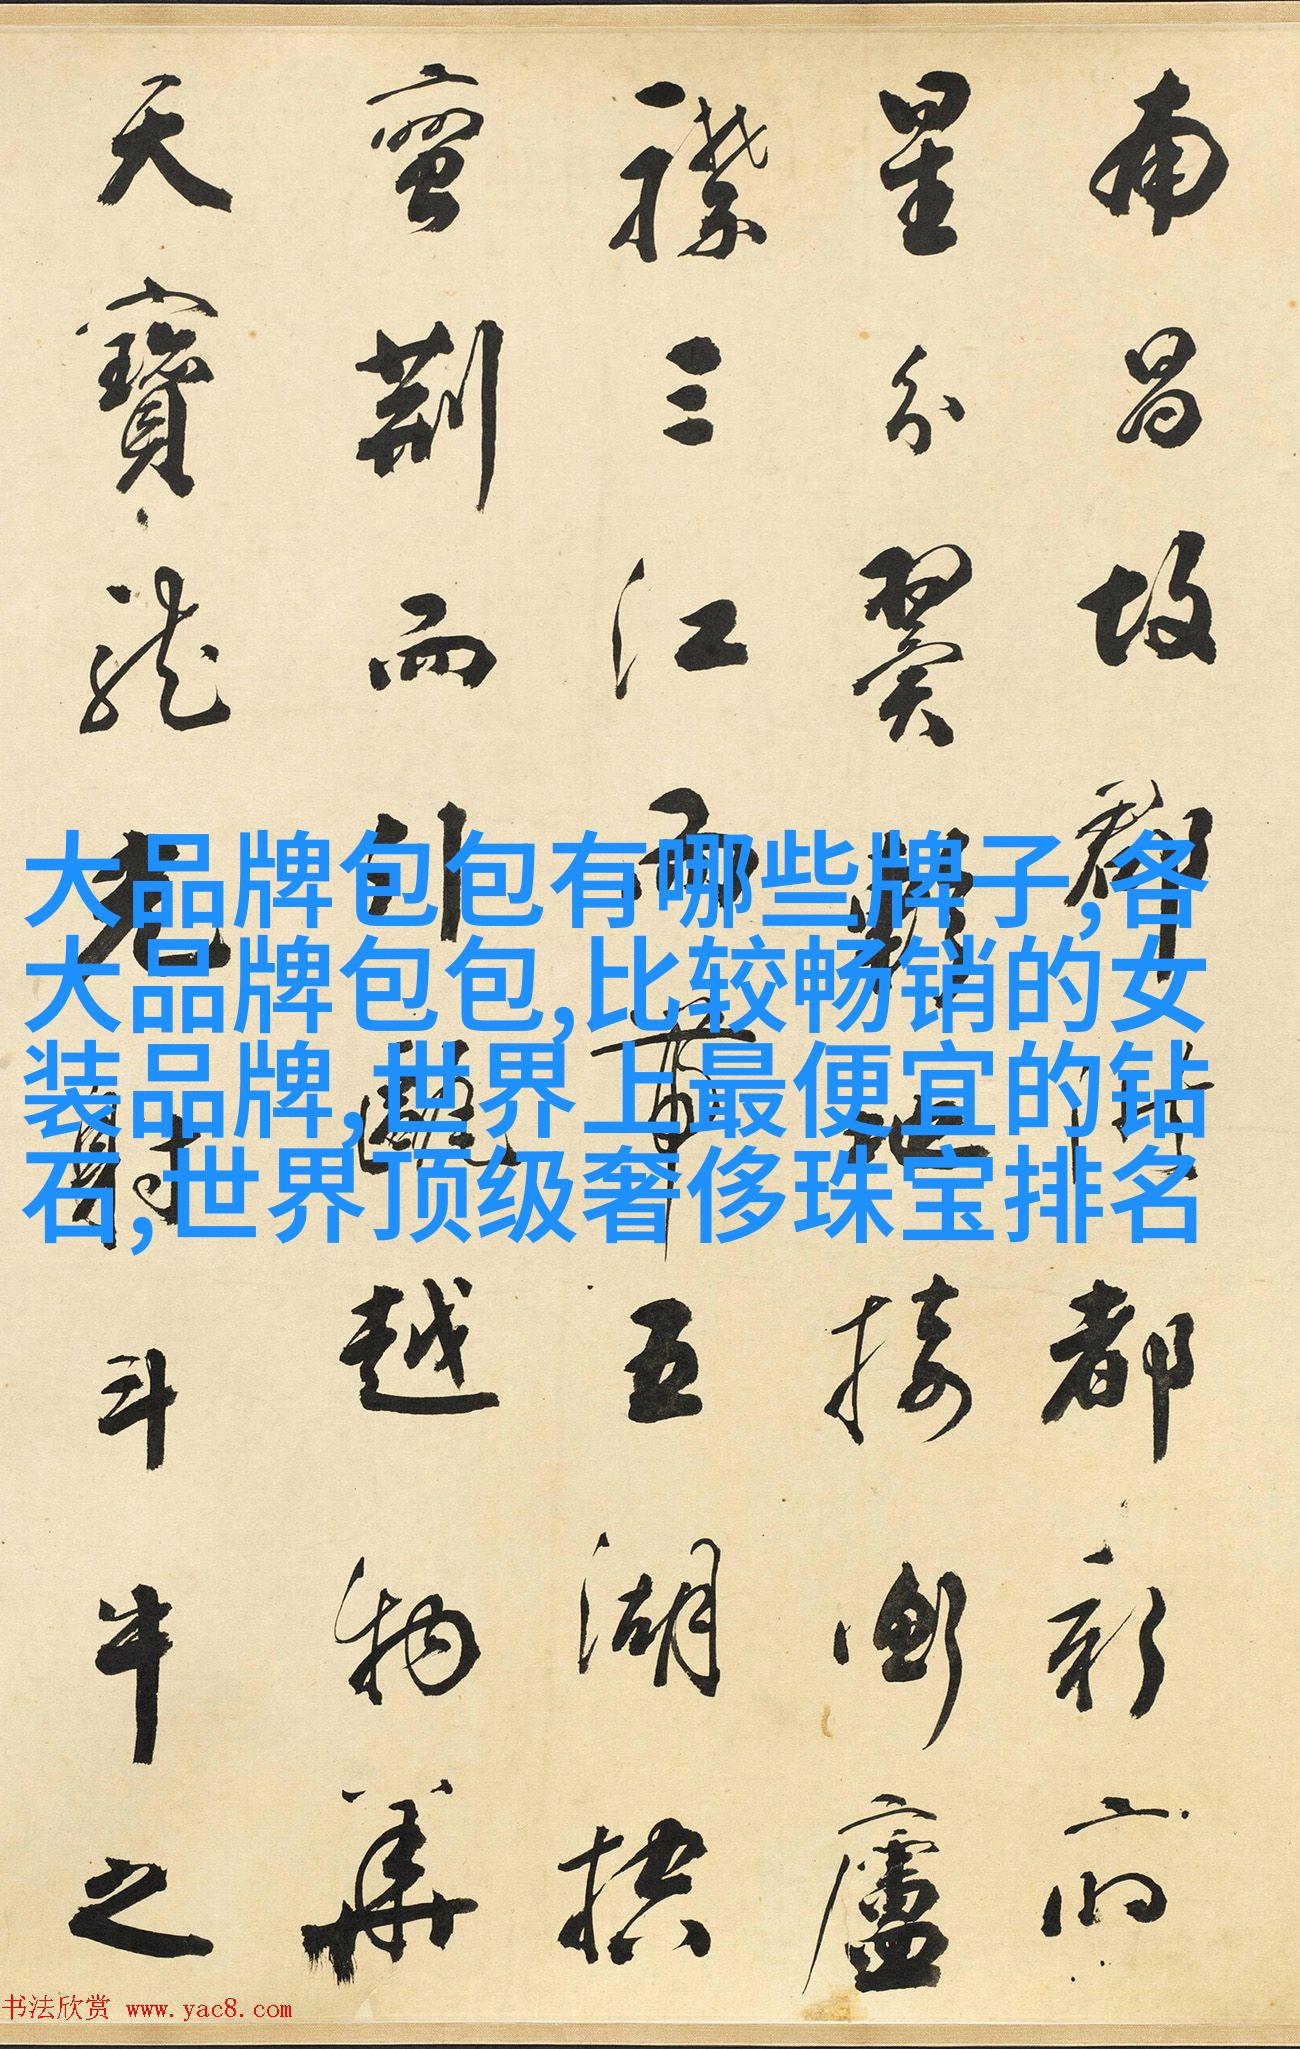 南昌故郡洪都新府
星分翼軫地接衡廬
襟三江而帶五湖控
蠻荆而引甌越物華
天寶龍光射斗牛之
大品牌包包有哪些牌子,各
大品牌包包,比较畅销的女
装品牌,世界上最便宜的钻
石,世界顶级奢侈珠宝排名
书法欣赏 www.yac8.com